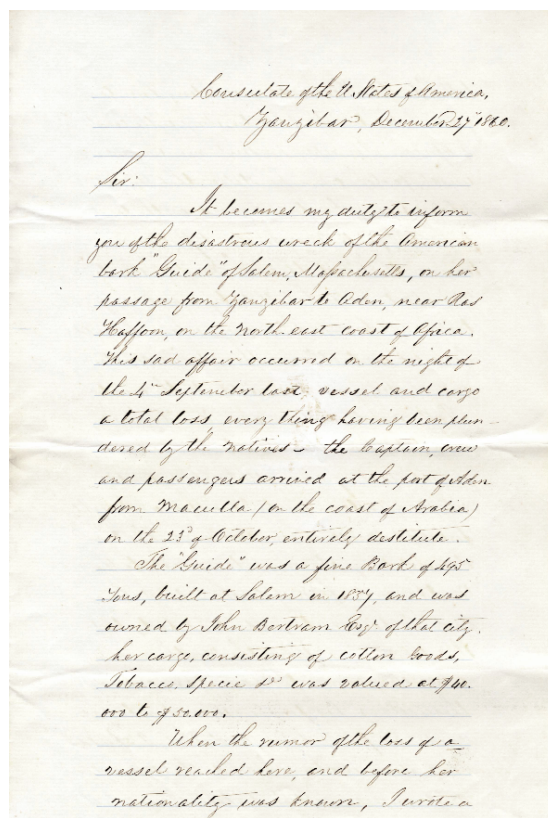 Consulate of the U States of America,
Zanzibar, December 27" 1860.
Sir:
It becomes my duty to inform
you of the disastrous wreck of the American
bark "Guide" of Salem, Massachusetts, on her
passage from Zanzibar to Aden, near Ras
Haffoon, on the North east coast of Africa.
This sad affair occurred on the night of
the 4th September last, vessel and cargo
a total loss, every thing having been plun-
dered by the natives - the Captain, crew
and passengers arrived at the port of Aden
from Maculla (on the coast of Arabia)
on the 23d of October, entirely destitute.
The "Guide" was a fine Bark of 495
Tons, built at Salem in 1857, and was
owned by John Bertram Esqr. of that city.
her cargo, consisting of cotton Goods,
Tobacco, specie &c was valued at $40.
000 to $50.000.
When the rumor of the loss of a
vessel reached here, and before her
nationality was known, I wrote a